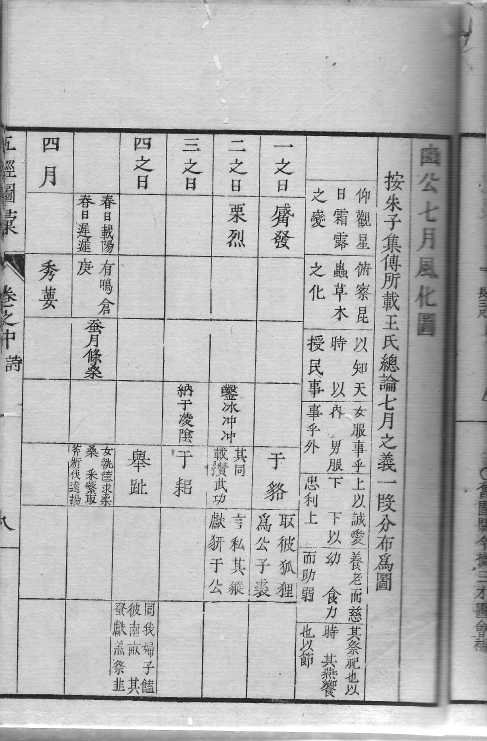 豳公七月風化圖
按朱子集傳所載王氏總論七月之義一段分布爲圖
仰觀星
日霜露
之變
俯察昆
蟲草木
之化
以知天
時以
授民事
女服事乎
內男服
事乎外
上以誠愛
下下以
忠利上
養老而慈
幼食力
而助弱
其祭祀也以
時其燕饗
也以節
一之日
觱發
于貉
取彼狐狸
爲公子裘
二之日
栗烈
鑿冰冲冲
其同
載纘武功
言私其豵
獻豜于公
三之日
納于凌陰
于耜
四之日
舉趾
同我婦子饁
彼南畝 其
蚤獻羔祭韭
春日載陽
春日遲遲
有鳴倉
庚
蚕月條桑
女執懿求柔
桑 采蘩取
斧斨伐遠揚
四月
秀葽
五經圖彙
卷之中
詩
八